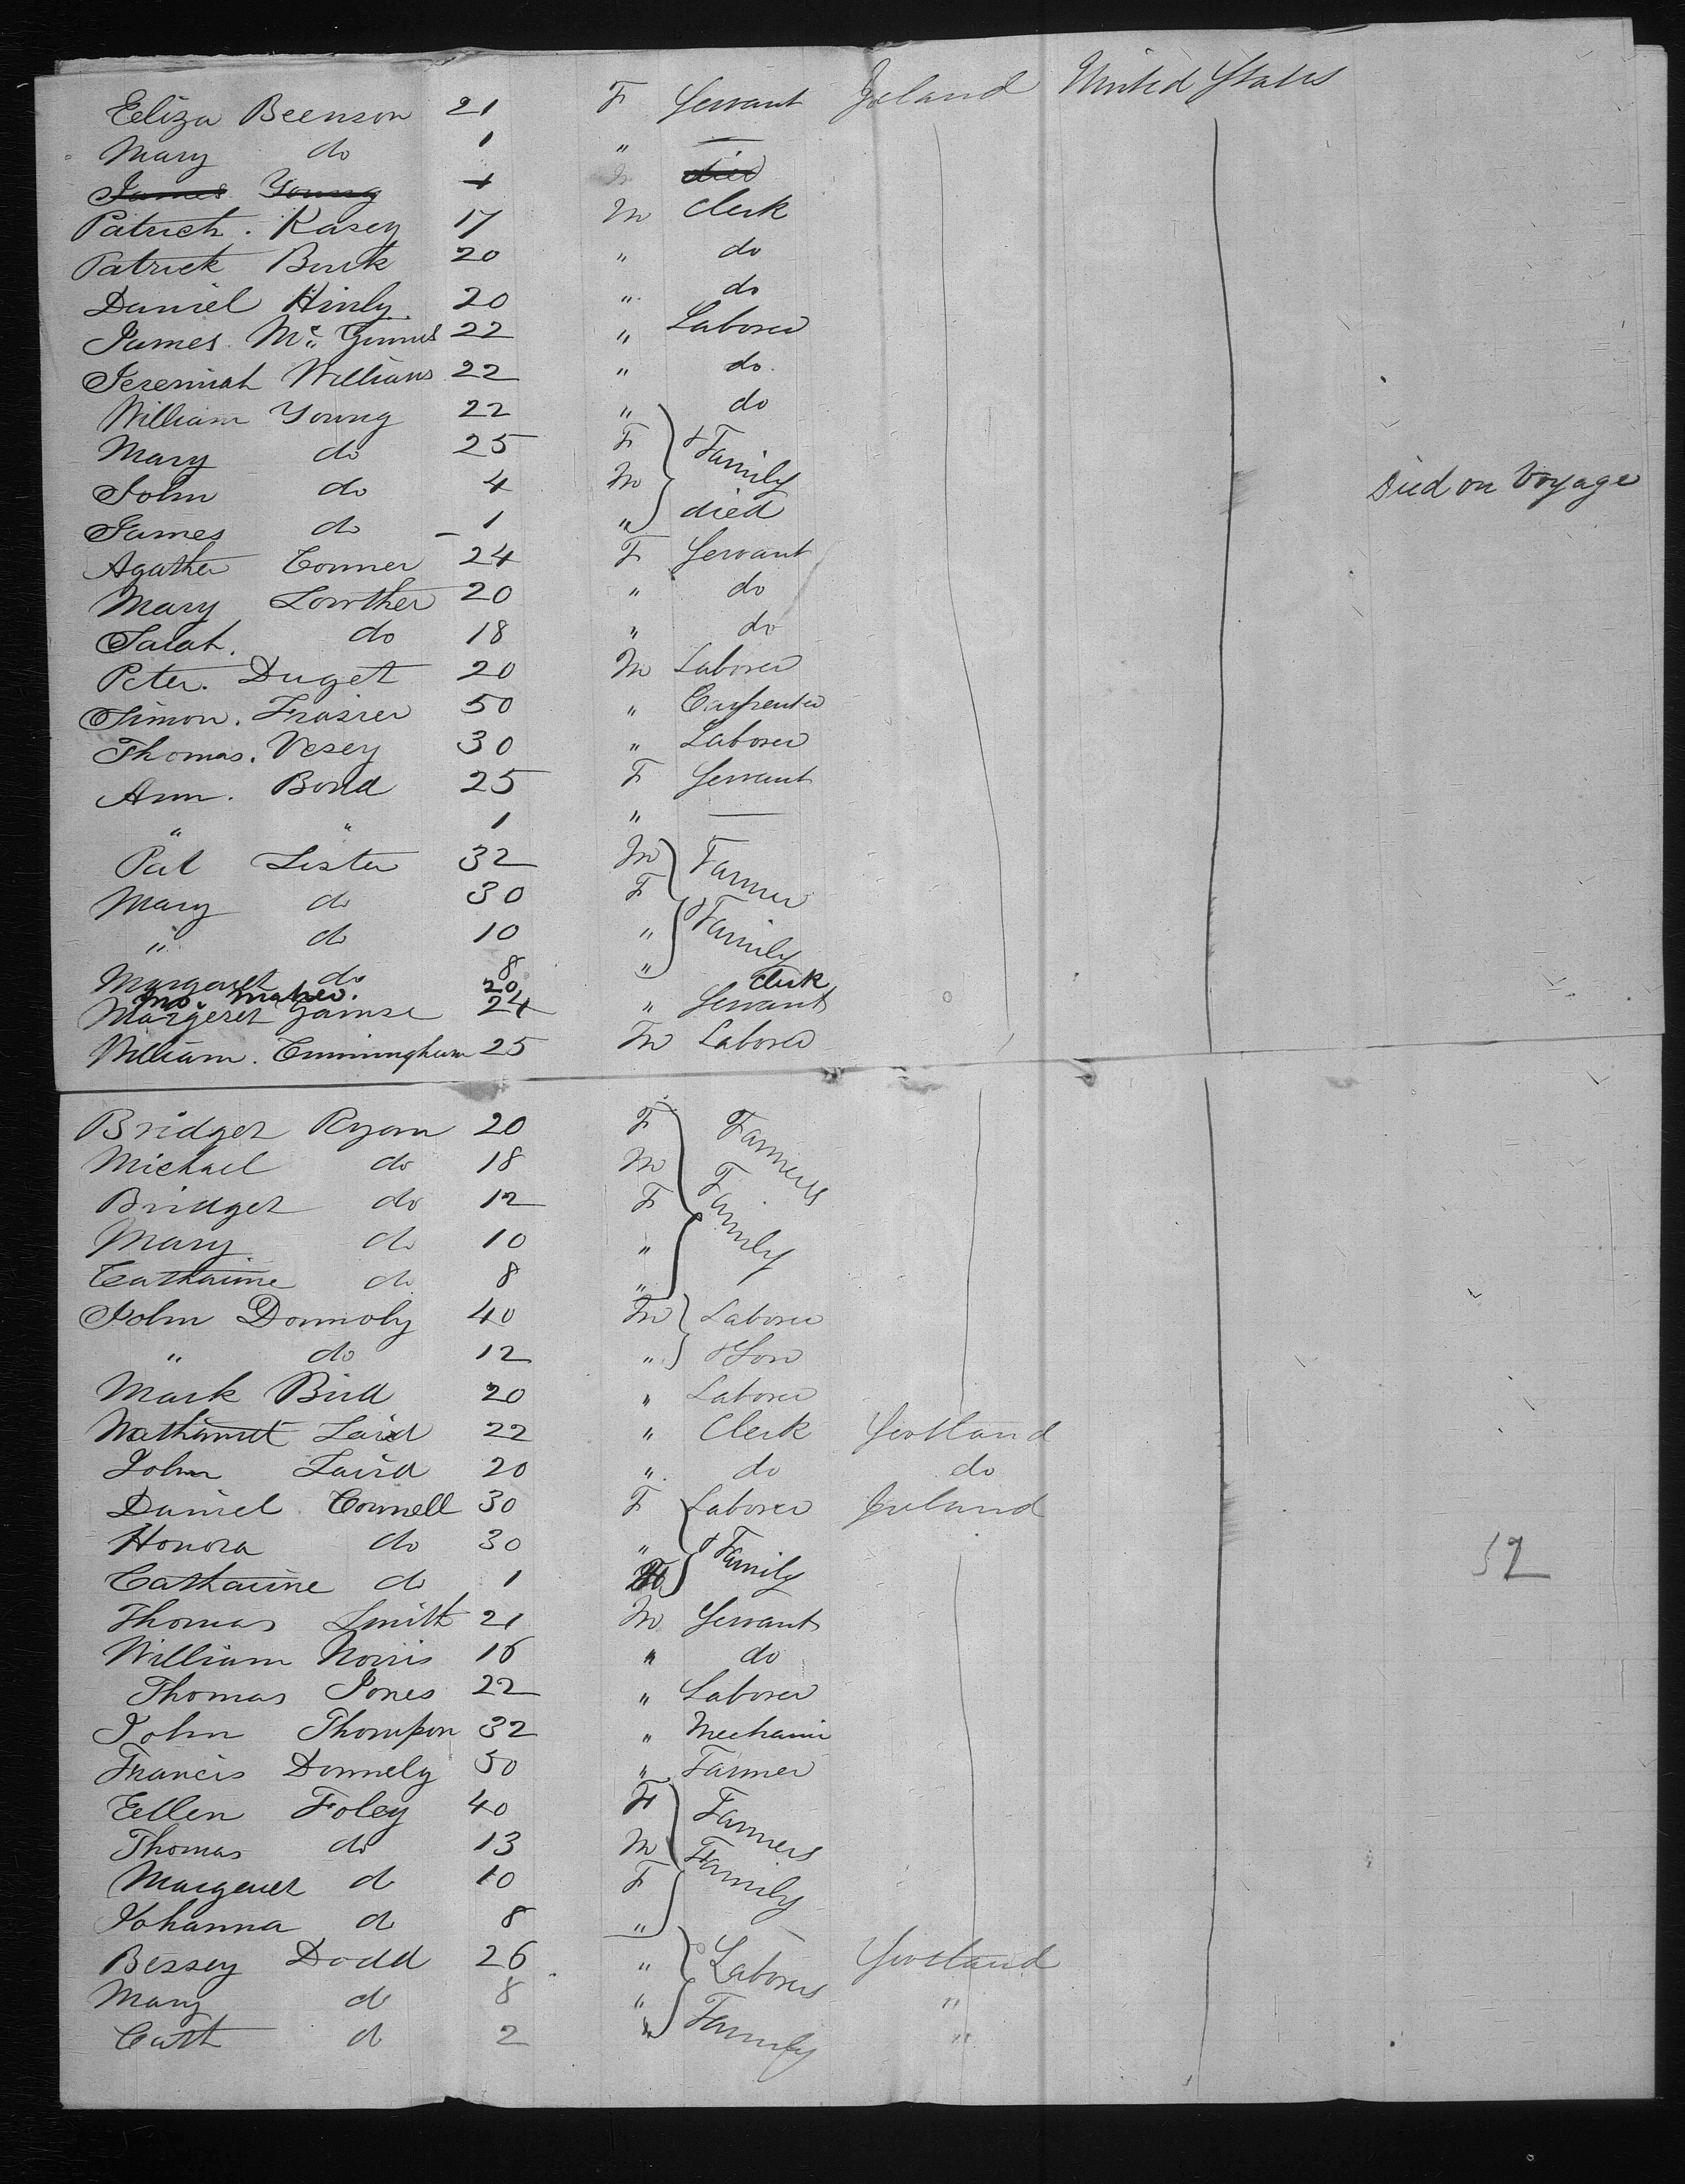 Eeliza Beenson 21 F Servant Ireland United States
Mary do 1 " —
James Young 1 M died
Patrick. Kasey 17 M Clerk
Patrick Burk 20 " do
Daniel Hinly. 20 " do
James Mc Ginnis 22 " Laborer
Jeremiah Williams 22 " do
William Young 22 " do
Mary do 25 F & Family
John do 4 M
James do – 1 " died Died on Voyage
Agather Conner 24 F Servant
Mary Lowther 20 " do
Sarah. do 18 " do
Peter. Duget 20 M Laborer
Simon. Frasier 50 " Carpenter
Thomas. Vesey 30 " Laborer
Ann. Bond 25 F Servant
" " 1 " —
Pat Lister 32 M Farmer
Mary do 30 F
" do 10 " & Family
Margaret do 8 "
20 Clerk
Margeret 24 " Servant
William. Cunningham 25 M Laborer
Bridget Ryan 20 F Farmers
Michael do 18 M
Bridget do 12 F Family
Mary do 10 "
Catharine do 8 "
John Donnoly 40 M Laborer
" do 12 " & Son
Mark Bird 20 " Laborer
Laird 22 " Clerk Scotland
John Laird 20 " do do
Daniel Connell 30 F Laborer Ireland
Honora do 30 " & Family
Catharine do 1 F
Thomas Smith 21 M Servant
William Norris 16 " do
Thomas Jones 22 " Laborer
John Thompson 32 " Mechanic
Francis Donnely 50 " Farmer
Eellen Foley 40 F Farmers
Thomas do 13 M
Margaret do 10 F Family
Johanna do 8 "
Bessey Dodd 26 " Laborers Scotland
Mary do 8 " "
Cath do 2 " Family "
52